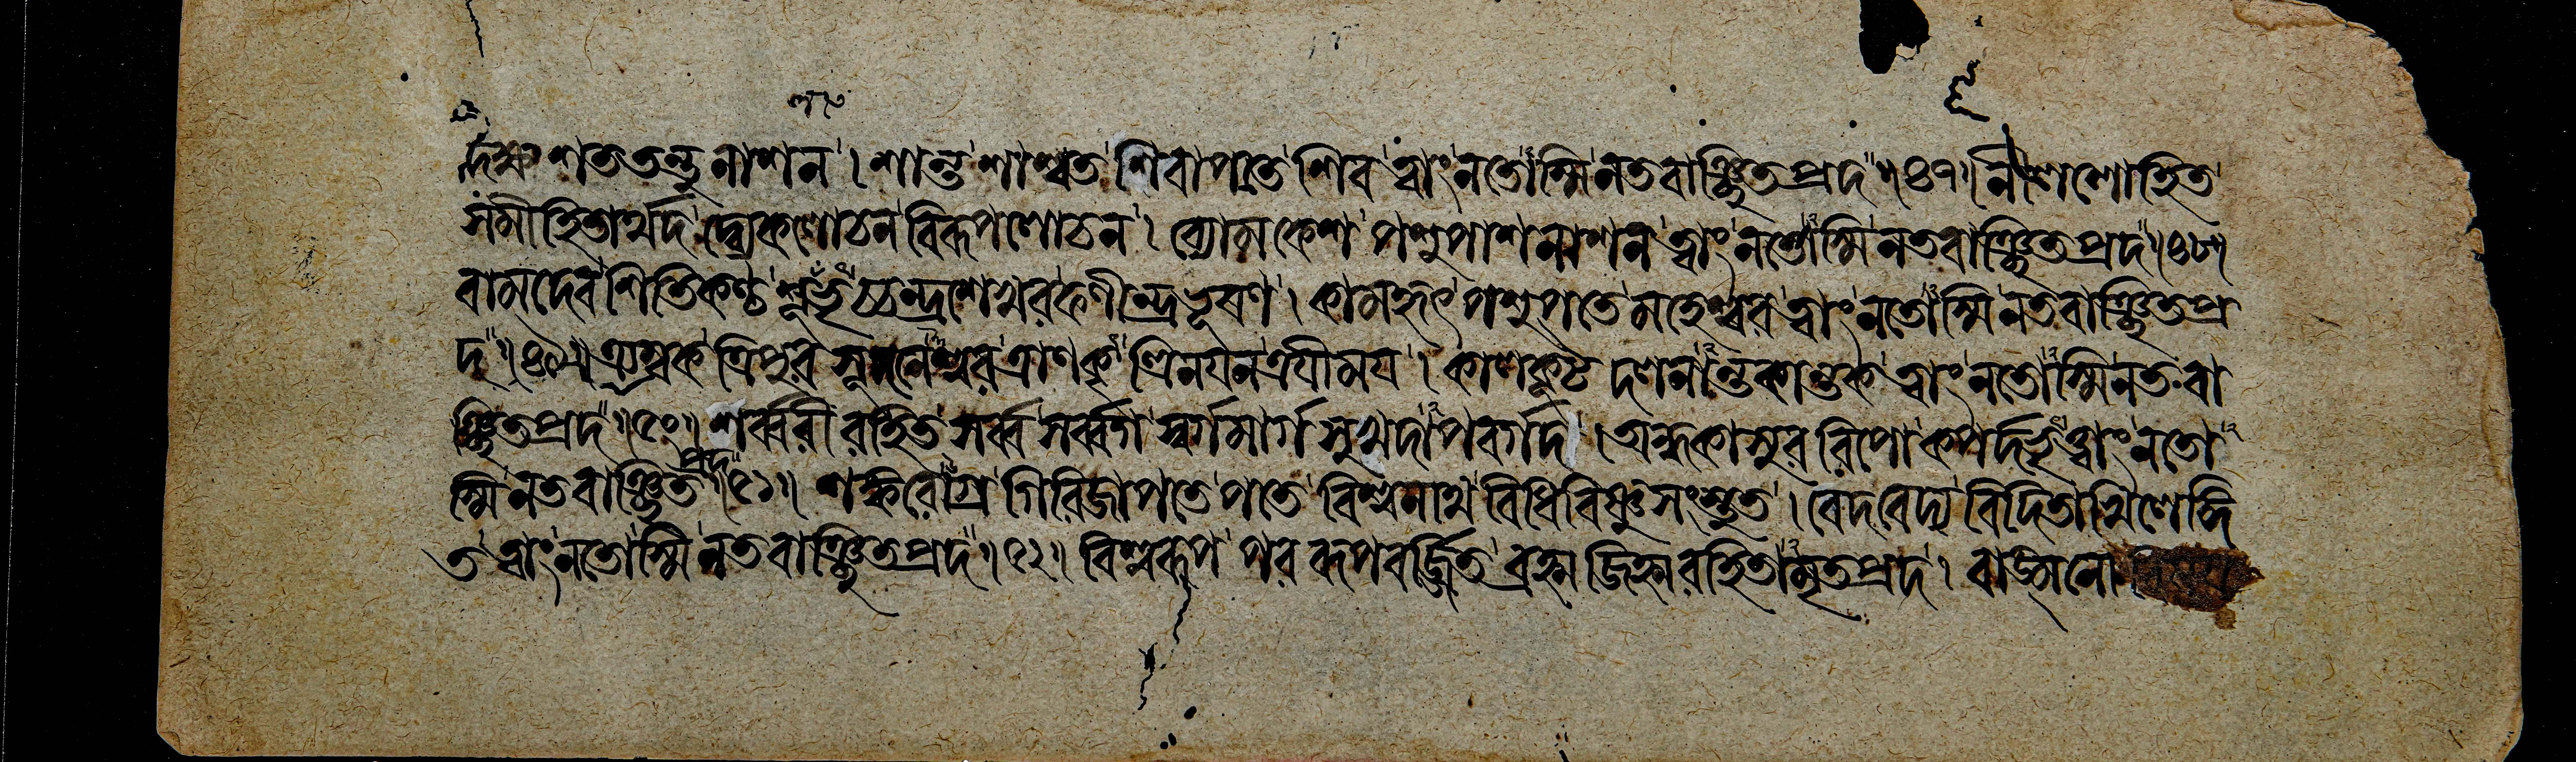 দক্ষ শততন্তুনাশন। শান্ত শাশ্বত শিবাপতে শিব ত্বাং নতোস্মি নতবাঞ্ছিতপ্রদ॥৪৭॥ নীললোহিত
সমীহিতার্থদ দ্ব্যেকলোচন বিরূপলোচন। ব্যোমকেশ পশুপাশনাশন ত্বাং নতোস্মি নতবাঞ্ছিতপ্রদ॥৪৮॥
বামদেব শিতিকণ্ঠ শূলভৃচ্চন্দ্রশেখর ফণীন্দ্রভূষণ। কামহৃৎ পশুপতে মহেশ্বর ত্বাং নতোস্মি নতবাঞ্ছিতপ্র
দ॥৪৯॥ ত্র্যম্বক ত্রিপুর সূদনেশ্বর ত্রাণকৃত্ত্রিনয়ন ত্রয়ীময়। কালকূট দলনান্তকান্তক ত্বাং নতোস্মি নতবা
ঞ্ছিতপ্রদ॥৫০॥ শর্ব্বরী রহিত সর্ব্ব সর্ব্বগ স্বর্গমার্গ সুখদাপবর্গদ। অন্ধকাসুর রিপো কপর্দভৃত্ত্বাং নতো
স্মি নতবাঞ্ছিতপ্রদ॥৫১॥ শঙ্করোগ্র গিরিজাপতে পতে বিশ্বনাথ বিধিবিষ্ণুসংস্তুত। বেদবেদ্য বিদিতাখিলেঙ্গি
ত ত্বাং নতোস্মি নতবাঞ্ছিতপ্রদ॥৫২॥ বিশ্বরূপ পর রূপবর্জ্জিত ব্রহ্ম জিহ্মরহিতামৃতপ্রদ। বাঙ্মনো